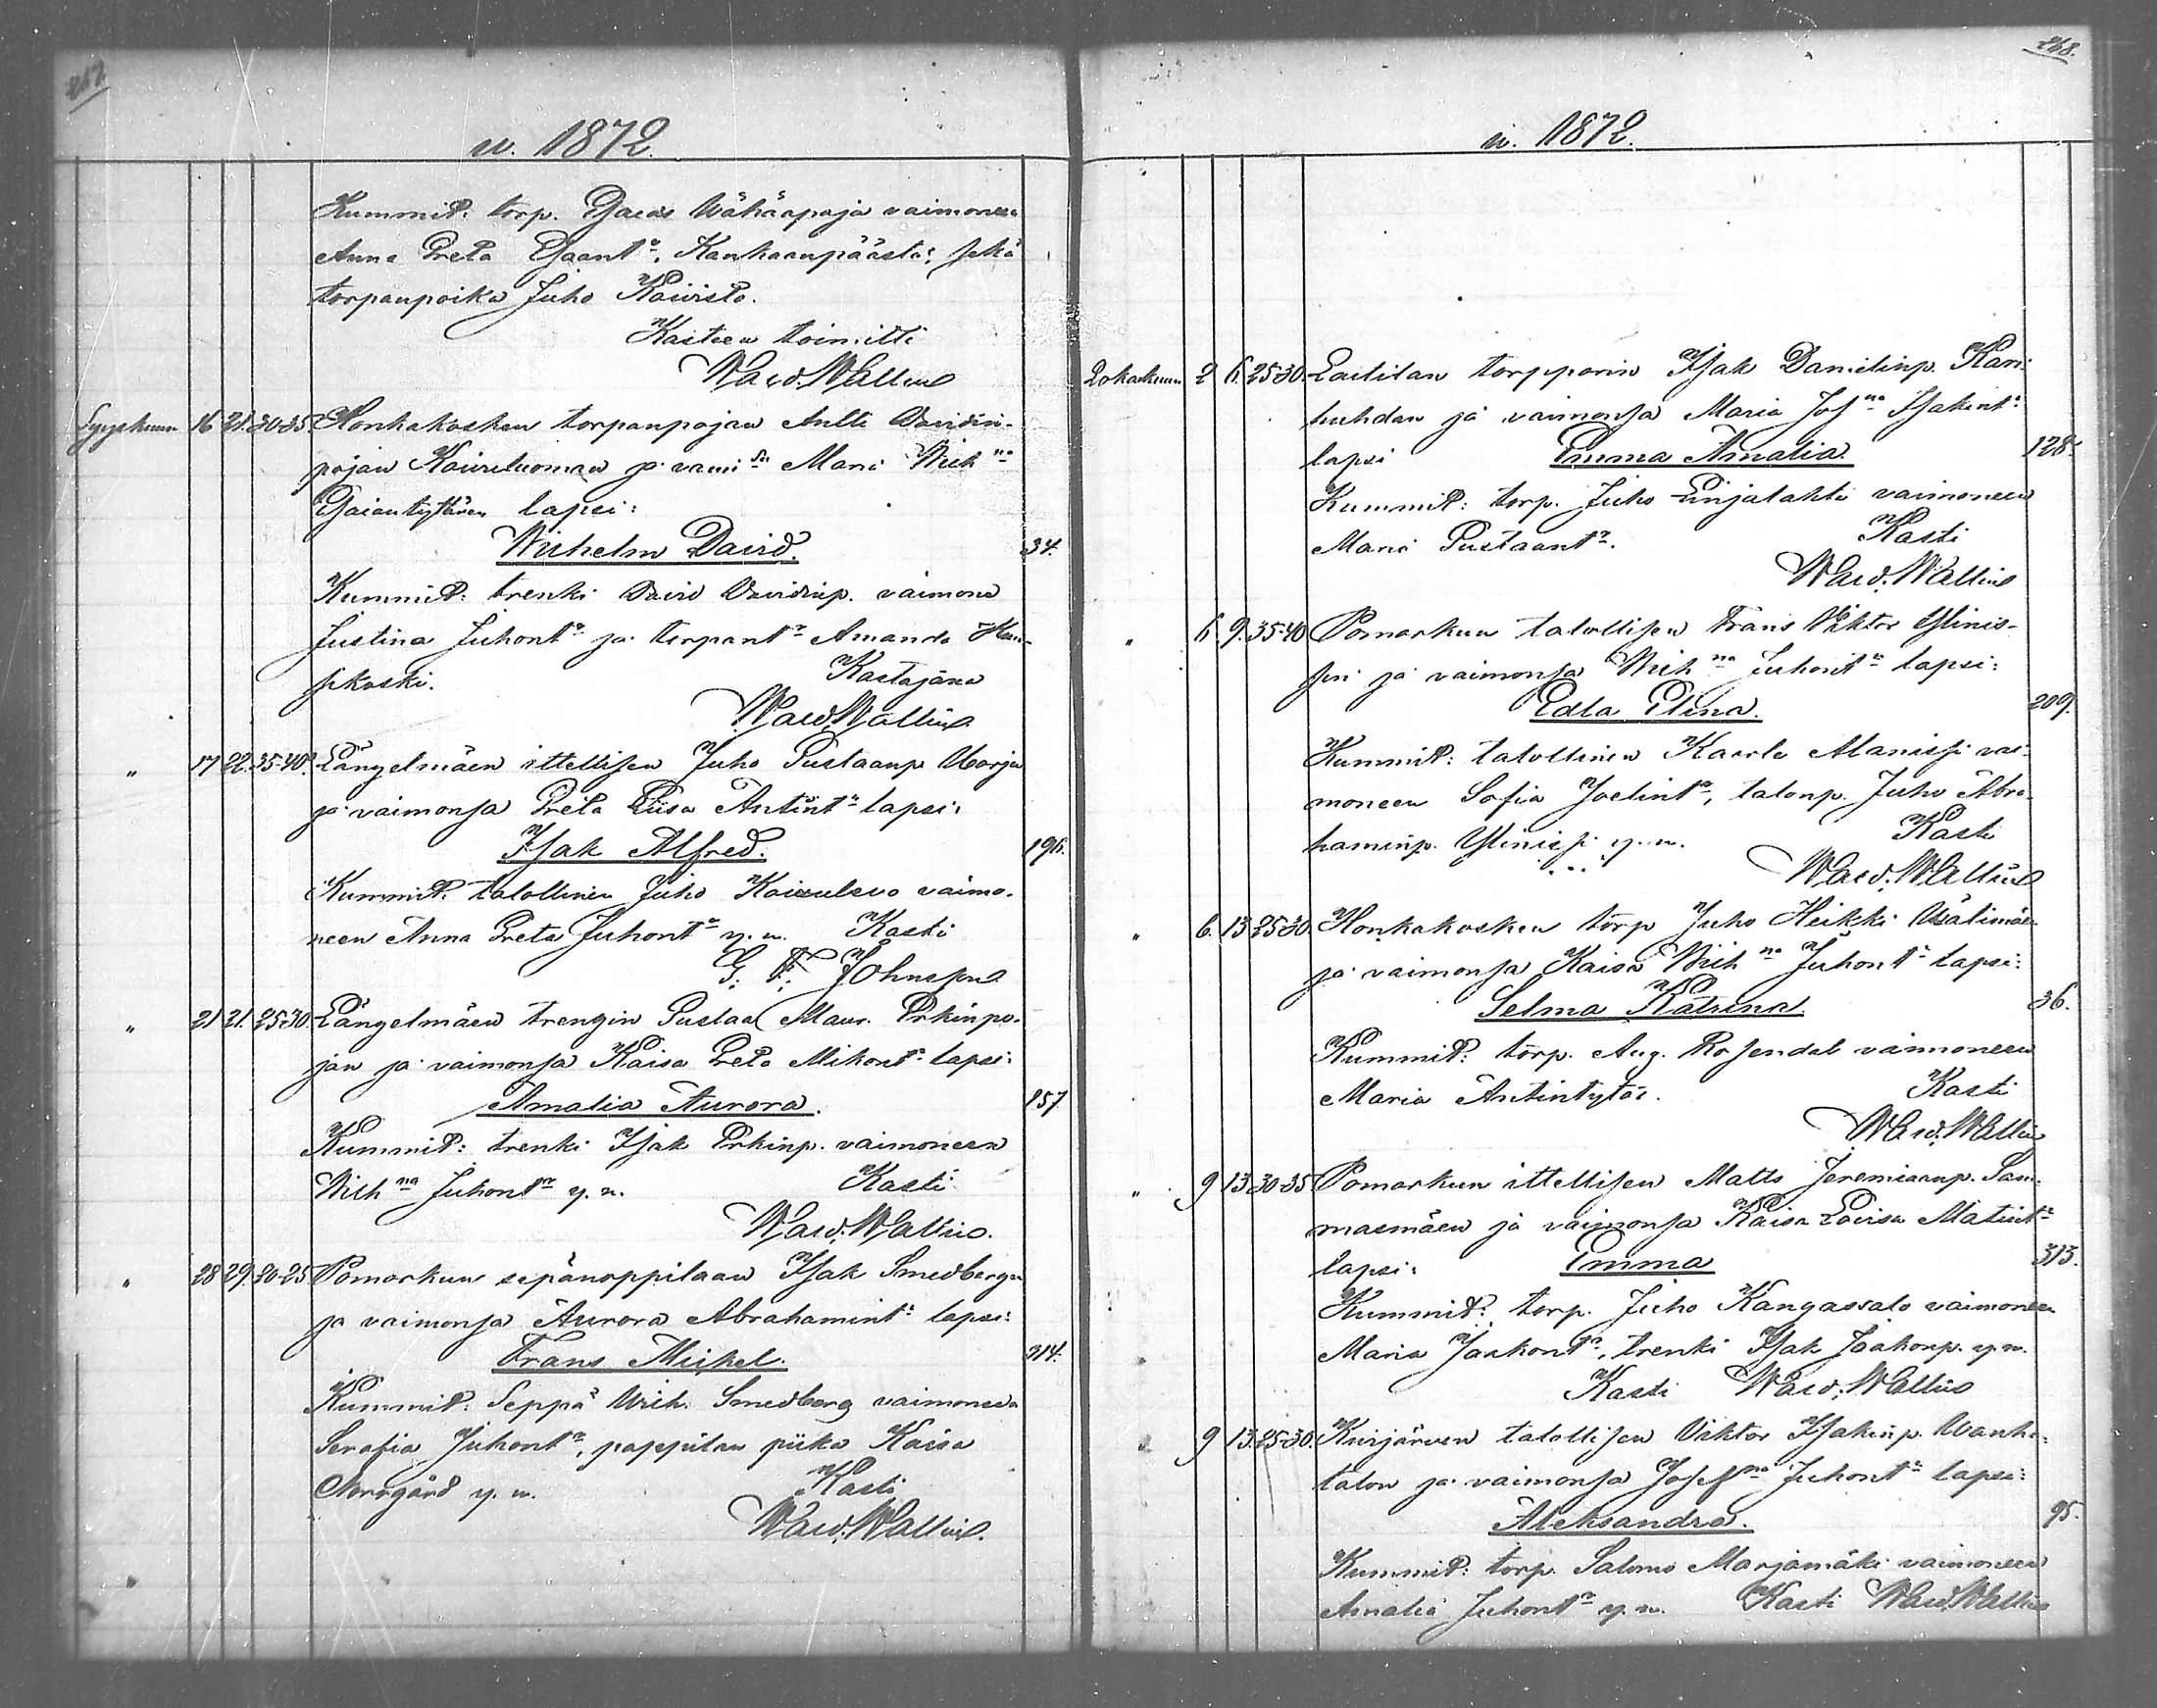 267.
v. 1872.
Kummit: torp. Esaias Wähäapaja vaimoneen
Anna Greta Esaant:r, Kankaanpäästä; sekä
torpanpoika Juho Koivisto.
Kasteen toimitti
Wald. Wallin
Syyskuun 16 21. 30-35. Honkakosken torpanpojan Antti Davidin-
pojan Koivuluoman ja vaim:sa Mari Wilh:na
Esaiantyttären lapsi:
Wilhelm David. 34.
Kummit: trenki David Davidinp. vaimonsa
Justina Juhont:r ja torpant:r Amanda Han-
sikoski. Kastajana
Wald. Wallin
" 17 22. 35-40. Längelmäen ittellisen Juho Gustaanp. Uorja
ja vaimonsa Greta Liisa Antint:n lapsi:
Isak Alfred. 196.
Kummit: talollinen Juho vaimo-
neen Anna Greta Juhont:r y. m. Kasti
G. F. Johnsson
" 21 21. 25-30. Längelmäen trengin Gustaa Maur. Erkinpo-
jan ja vaimonsa Kaisa Greta Mikont:n lapsi:
Amalia Aurora. 157
Kummit: trenki Isak Erkinp. vaimoneen
Wilh:na Juhont:r y. m. Kasti
Wald. Wallin.
" 28 29. 20-25 Pomarkun sepänoppilaan Isak Smedbergin
ja vaimonsa Aurora Abrahamint:n lapsi:
Frans Mikel. 314.
Kummit: Seppä Wilh. Smedberg vaimoneen
Serafia Juhont:r, pappilan piika Kaisa
Norrgård y. m. Kasti
Wald. Wallin.
268.
v. 1872.
Lokakuun 2 6. 25-30. Lassilan torpparin Isak Danielinp. Kari-
luhdan ja vaimonsa Maria Jos:na Isakint:n
lapsi Emma Amalia. 128.
Kummit: torp. Juho Linjalahti vaimoneen
Mari Gustaant:r. Kasti
Wald. Wallin
" 6. 9. 35-40 Pomarkun talollisen Frans Viktor Ylinis-
sin ja vaimonsa Wilh:na Juhont:n lapsi:
Edla Elina. 209.
Kummit: talollinen Kaarlo Alanissi vai-
moneen Sofia Joelint:r, talonp. Juho Abra-
haminp. Ylinissi y. m. Kasti
Wald. Wallin
" 6. 13 25-30. Honkakosken torp Juho Heikki Välimäen
ja vaimonsa Kaisa Wilh:na Juhont:n lapsi:
Selma Katrina. 36.
Kummit: torp. Aug. Rosendal vaimoneen
Maria Antintytär. Kasti
Wald. Wallin
" 9 13 30-35 Pomarkun ittellisen Matts Jeremiaanp. Sam-
malmäen ja vaimonsa Kaisa Lovisa Matint:n
lapsi: Emma 313.
Kummit: torp. Juho Kangassalo vaimoneen
Maria Jaakont:r, trenki Isak Jaakonp. y. m.
Kasti Wald. Wallin
" 9 13. 25-30. Kiusjärven talollisen Viktor Isakinp. Wanha-
talon ja vaimonsa Josef:na Juhont:n lapsi:
Aleksandra. 95.
Kummit: torp. Salomo Marjamäki vaimoneen
Amalia Juhont:r y. m. Kasti Wald. Wallin